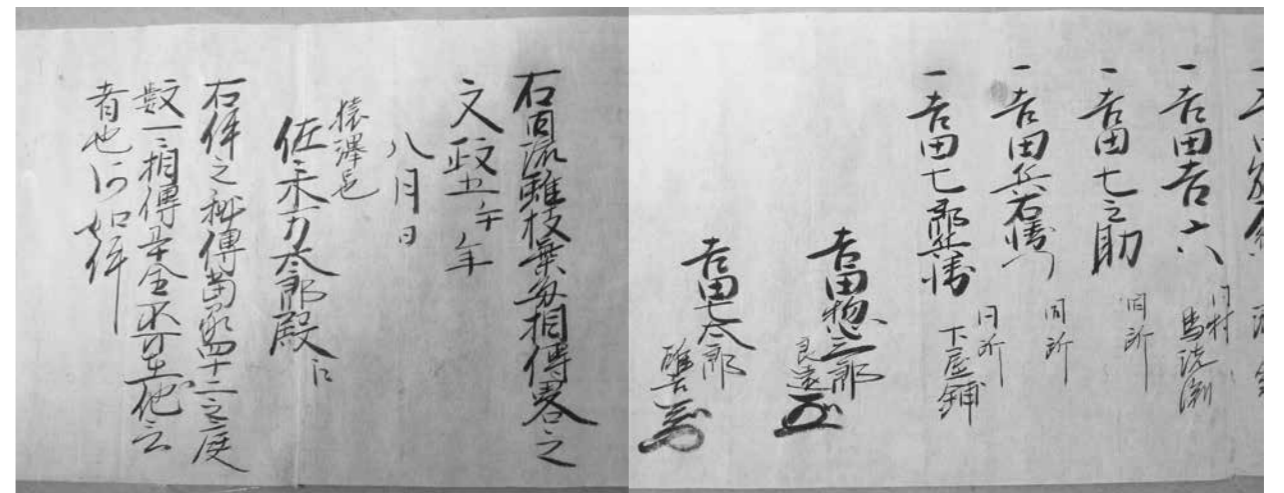 一吉田吉六
同村
馬洗渕
一吉田七之助
同所
一吉田兵右衛門
同所
一吉田七郎兵衛
同所
下屋鋪
吉田惣三郎
良遠
吉田七太郎
右同流雖枝葉多相傳畧之
文政五午年
八月日
猿澤邑
佐々木万太郎殿江
右件之秘傳当家四十二之庭
数一々相傳畢全不可在他言
者也仍如件